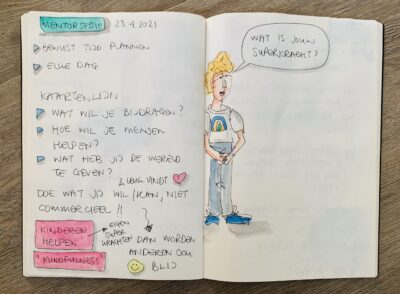 MENTORSESSIE 23.4.2021
BEWUST TIJD PLANNEN
ELKE DAG
KAARTENLIJN
WAT WIL JE BIJDRAGEN?
HOE WIL JE MENSEN
HELPEN?
WAT HEB JIJ DE WERELD
TE GEVEN?
LEUK VINDT
DOE WAT JIJ WIL/KAN, NIET
COMMERCIEEL!!
KINDEREN
HELPEN
EIGEN
SUPER
KRACHTEN
MINDFULNESS
DAN WORDEN
ANDEREN OOK
BLIJ
WAT IS JOUW
SUPERKRACHT?